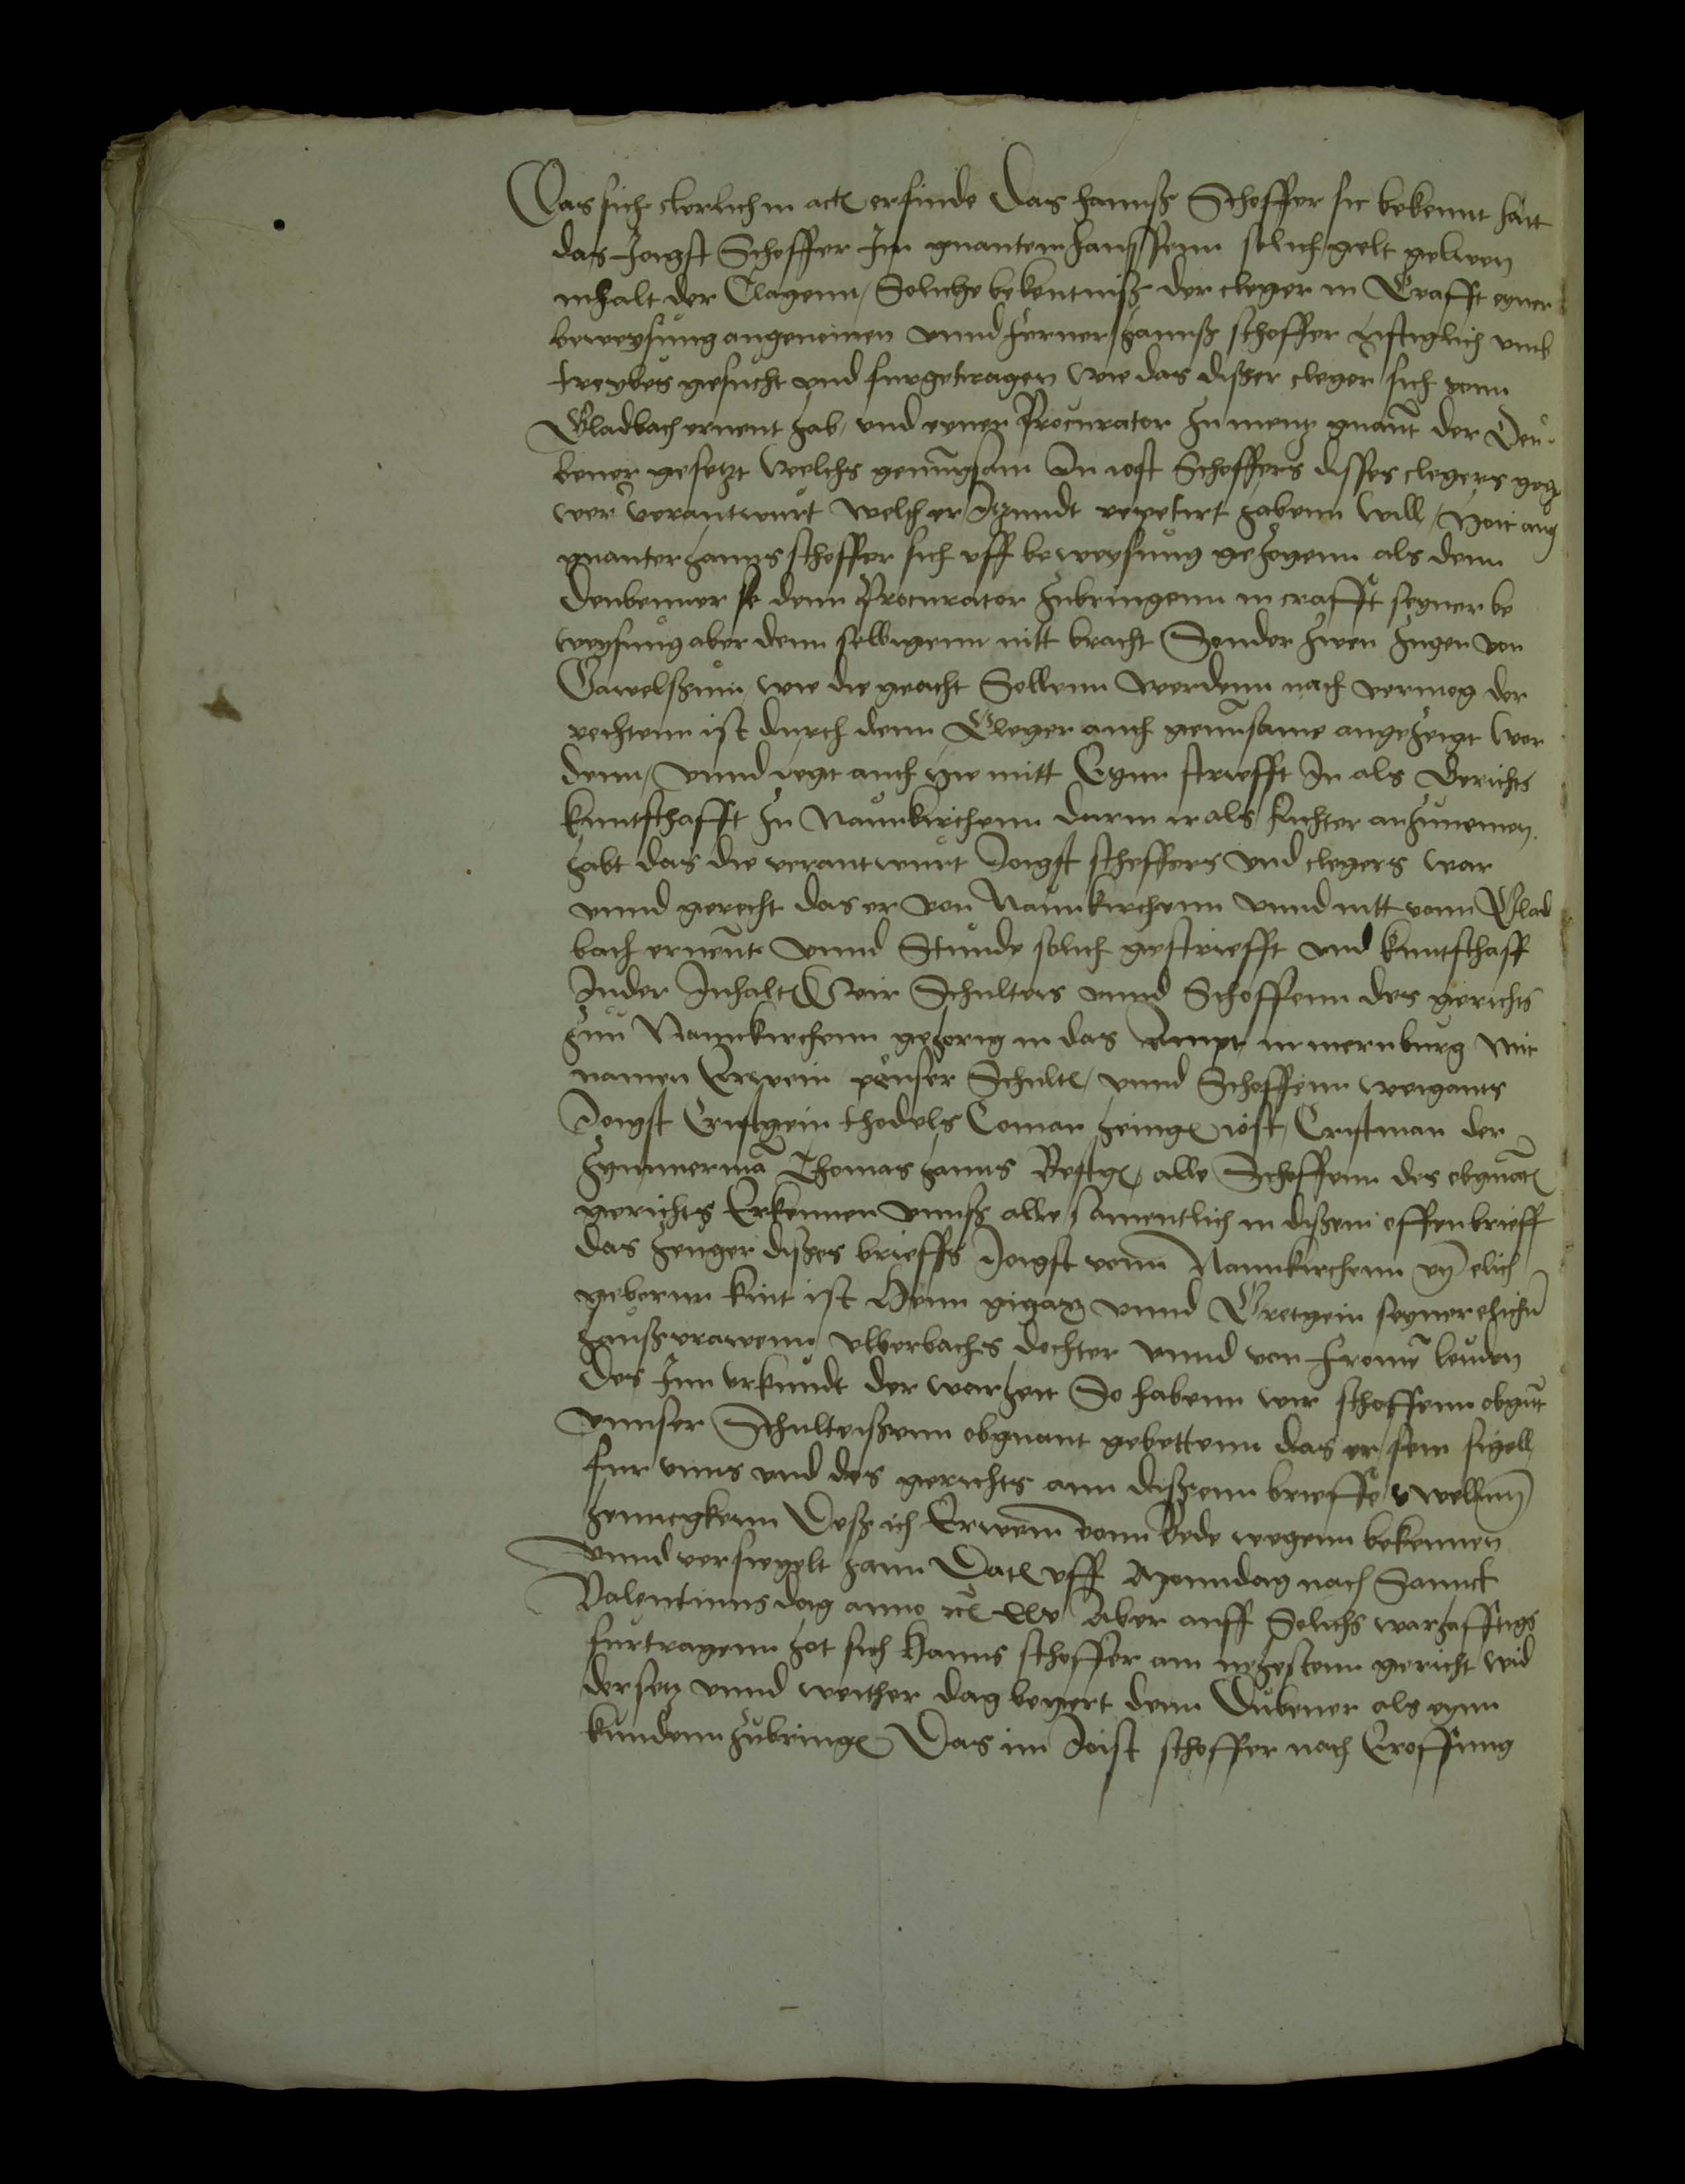 Das sich clerlich in act erfinde Das hannß Scheffer sie bekennt hatt
das Jorgst Scheffer Im gnantem Hanssenn solich gelt geluen
inhalt der Clagenn / Soliche bekentniß der cleger in Crafft eyner
beweysung angenomen vnnd ferner hannß scheffer listiglich vmb
treybes gesucht vnd furgetragen wie das disser cleger sich vonn
Gladbach ernent hab / vnd eynen Procurator zu mentz gnant der Deu
bener gesetzt welchs genungsam In jost Scheffers disses clegers geg
wer verantwurt welch er Itzundt repetirt habenn will /
gnanter hanns scheffer sich vff beweysung gezogenn als denn
Deubenner denn Procurator zubringenn in crafft seyner be
weysung aber denn selbigenn nitt bracht Sonder zwen zugen von
wie die geacht Sollenn werdenn nach vermog der
rechtenn ist durch denn Cleger auch genunsame angezeigt wor
denn / vnnd legt auch hie mitt Eynn schriefft In als Gerichts
kuntschafft zu Naunkirchenn darin ir als Richter anzunemen
habt das die verantwurt Jorgst scheffers vnd clegers war
vnnd gerecht das er von Naunkirchenn vnnd nitt vonn Glad
bach ernent vnnd Stunde solich geschriefft vnd kuntschaff
Inder Inhalt Wir Schulteis vnnd Scheffenn des gerichts
zuu Naunkirchenn gehorig in das Ampt mit
namen Erwein Schult / vnnd Scheffenn weigants
Jorgst thodels Coman jost / Cristman der
Zymmerma Thomas hanns alle Scheffenn des obgnat
gerichts Erkennen vnnß alle samentlich in dißem offen brieff
das zeuger dißes brieffs Jorgst vonn Naunkirchenn eyn elich
geborenn kint ist Henn vnnd Gretgein seyner elichn
haußvrawenn dochter vnnd von frome leuden
Des Zuu vrkundt der warheit So habenn wir scheffenn obgnt
vnnser Schulteißenn obgnant gebettenn das er sein sigell
fur vnns vnd des gerichts ann dißenn brieffe wellenn
henngkenn Deß ich Erwein vonn Bede wegenn bekennen
vnnd versiegelt hann Dat vff Monndag nach Sannct
Valentinns dag anno xv Aber auff Solichs warhafftigs
furtragenn hot sich Hanns scheffer am nehestenn gericht wid
dersetz vnnd weither dag begert denn Dubener als eynn
kundenn zubring Das im Joist scheffer nach Eroffnung